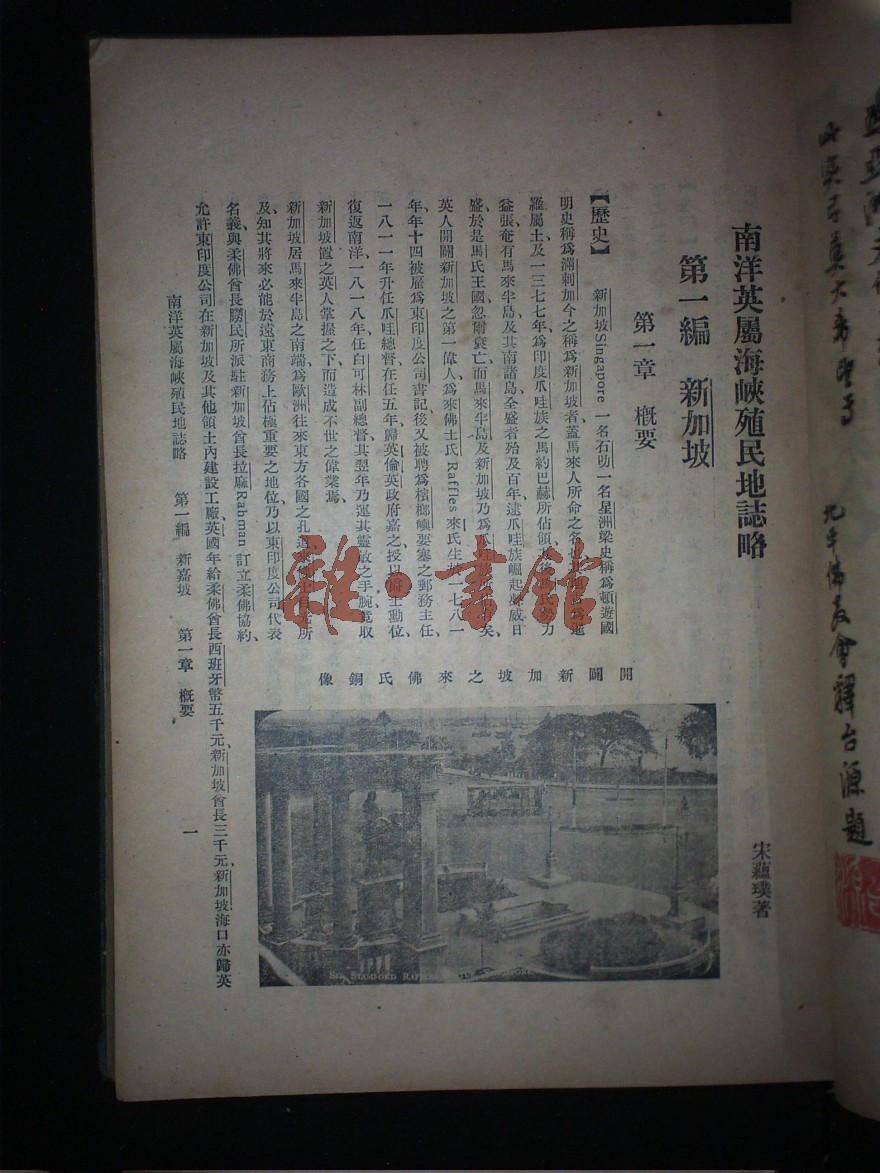 南洋英屬海峽殖民地誌略
宋蘊璞著
第一編 新加坡
第一章 概要
【歷史】 新加坡Singapore 一名石叻一名星洲梁史稱爲頓遊國
明史稱爲滿剌加今之稱爲新加坡者、蓋馬來人所命之名也
羅屬土及一三七七年、爲印度爪哇族之馬約巴赫所佔領
益張、奄有馬來半島及其南諸島全盛者殆及百年、逮爪哇族崛起聲威日
盛、於是馬氏王國忽爾衰亡、而馬來半島及新加坡乃爲爪哇族
矣
英人開闢新加坡之第一偉人爲來佛士氏 Raffles 來氏生於一七八一
年、年十四被雇爲東印度公司書記、後又被聘爲檳榔嶼要塞之郵務主任
一八一一年升任爪哇總督、在任五年、歸英倫、英政府嘉之、授以爵士勳位、
復返南洋、一八一八年、任白可林副總督、其翌年乃運其靈敏之手腕、竟取
新加坡置之英人掌握之下、而造成不世之偉業焉、
新加坡居馬來半島之南端、爲歐洲往來東方各國之孔道
所
及、知其將來必能於遠東商務上佔極重要之地位、乃以東印度公司代表
名義、與柔佛酋長勝民所派駐新加坡酋長拉麻Rahman 訂立柔佛協約、
允許東印度公司在新加坡及其他領土內建設工廠、英國年給柔佛酋長西班牙幣五千元、新加坡酋長三千元、新加坡海口亦歸英
開闢新加坡之來佛氏銅像
SIR STAMFORD RAFFLES
南洋英屬海峽殖民地誌略 第一編 新嘉坡 第一章 概要 一
雜·書館
北平佛教會釋台源題